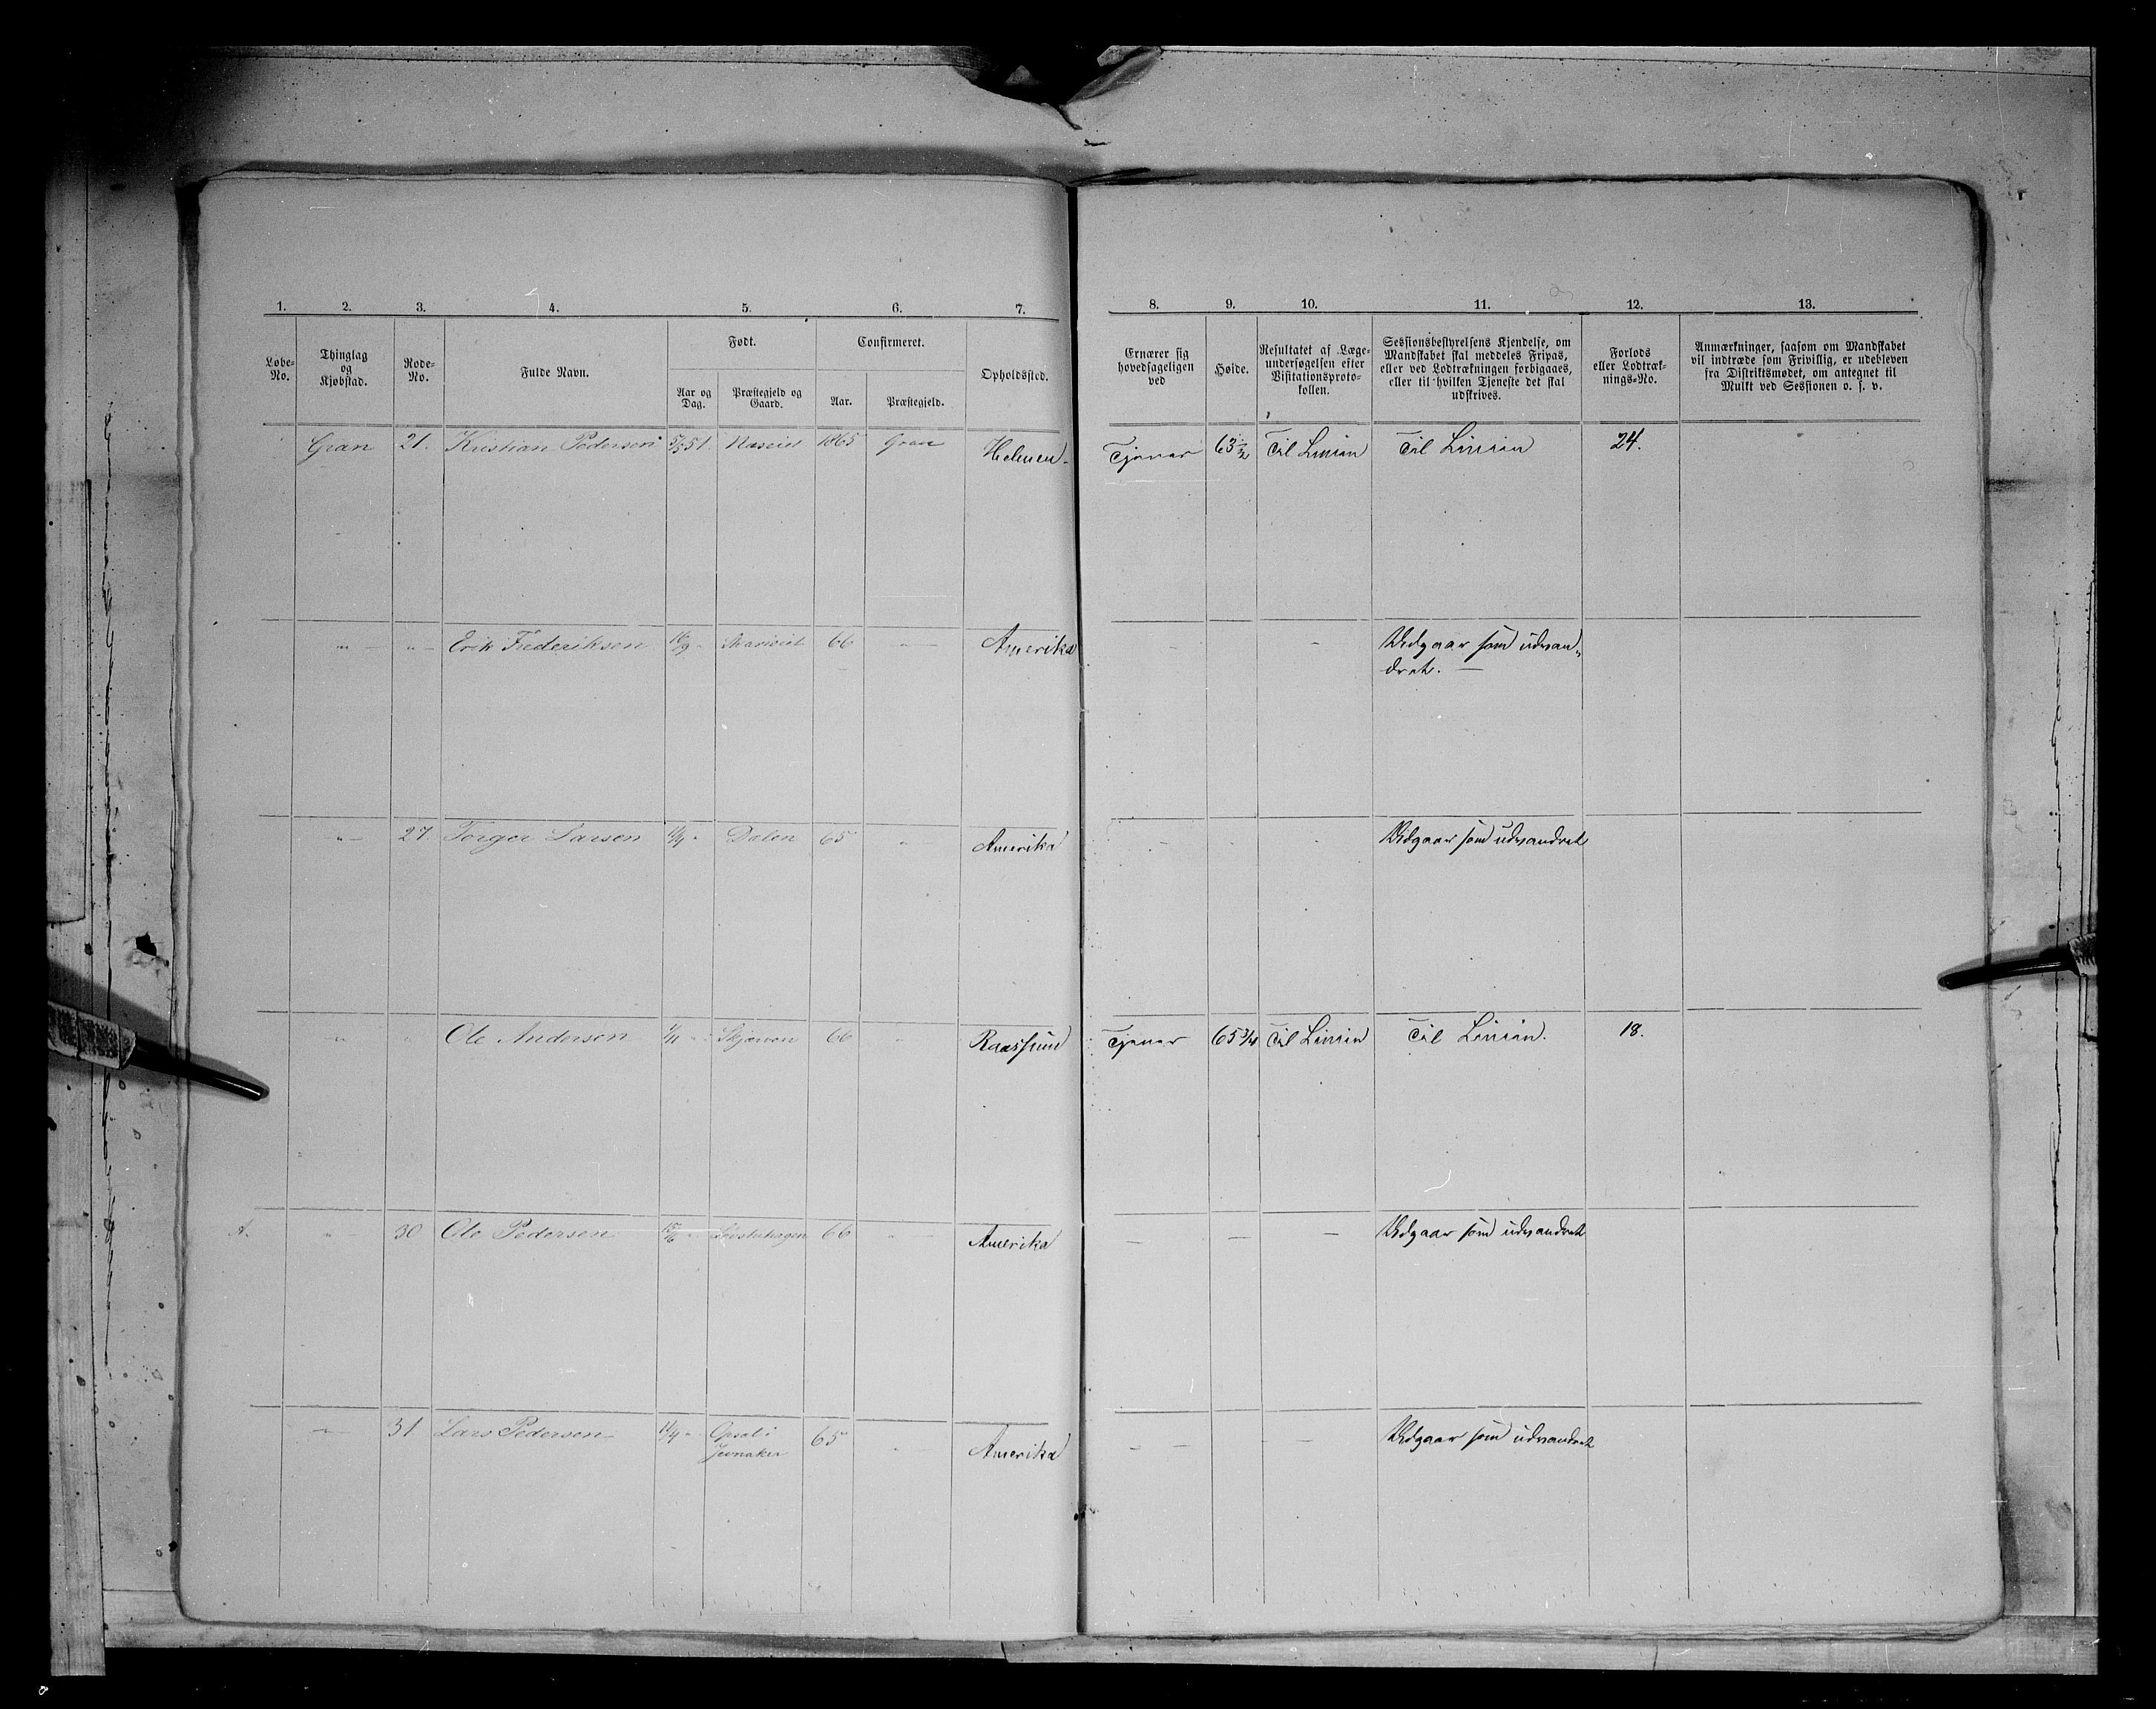 1. 2. 3. 4. 5. 6. 7. 8. 9. 10. 11. 12. 13.
Løbe-No.
Thinglag og Kjøbstad.
Rode-No.
Fulde Navn.
Født.
Aar og Dag.
Præstegjeld og Gaard.
Confirmeret.
Aar.
Præstegjeld.
Opholdssted.
Ernærer sig hovedsageligen ved
Høide.
Resultatet af Læge-
undersøgelsen efter
Visitationsproto-
kollen.
Sessionsbestyrelsens Kjendelse, om
Mandskabet skal meddeles Fripas,
eller ved Lodtrækningen forbigaaes,
eller til hvilken Tjeneste det skal
udskrives.
Forlods
eller Lodtræk-
nings-No.
Anmærkninger, saasom om Mandskabet
vil indtræde som Frivillig, er udebleven
fra Distriktsmødet, om antegnet til
Mulkt ved Sessionen o. s. v.
Gran 21. Kristian Pedersen 5/5 51. Naseiet 1865 Gran Helmen - Tjener 63 1/2 Til Linien Til Linien 24.
" " Erik Frederiksen 16/9 " 66 " Amerika - - Udgaar som udvan-
dret. —
" 27. Torger Larsen " Dalen 65 " Amerika - - - Udgaar som udvandret
" " Ole Andersen " Skjerven 66 " Raassum Tjener 65 3/4 Til Linien Til Linien. 18.
A. " 30 Ole Pedersen 15/6 " 66 " Amerika - - - Udgaar som udvandret
" 31 Lars Pedersen 11/4 " Opsal i
Jevnaker 65 " Amerika - - - Udgaar som udvandret